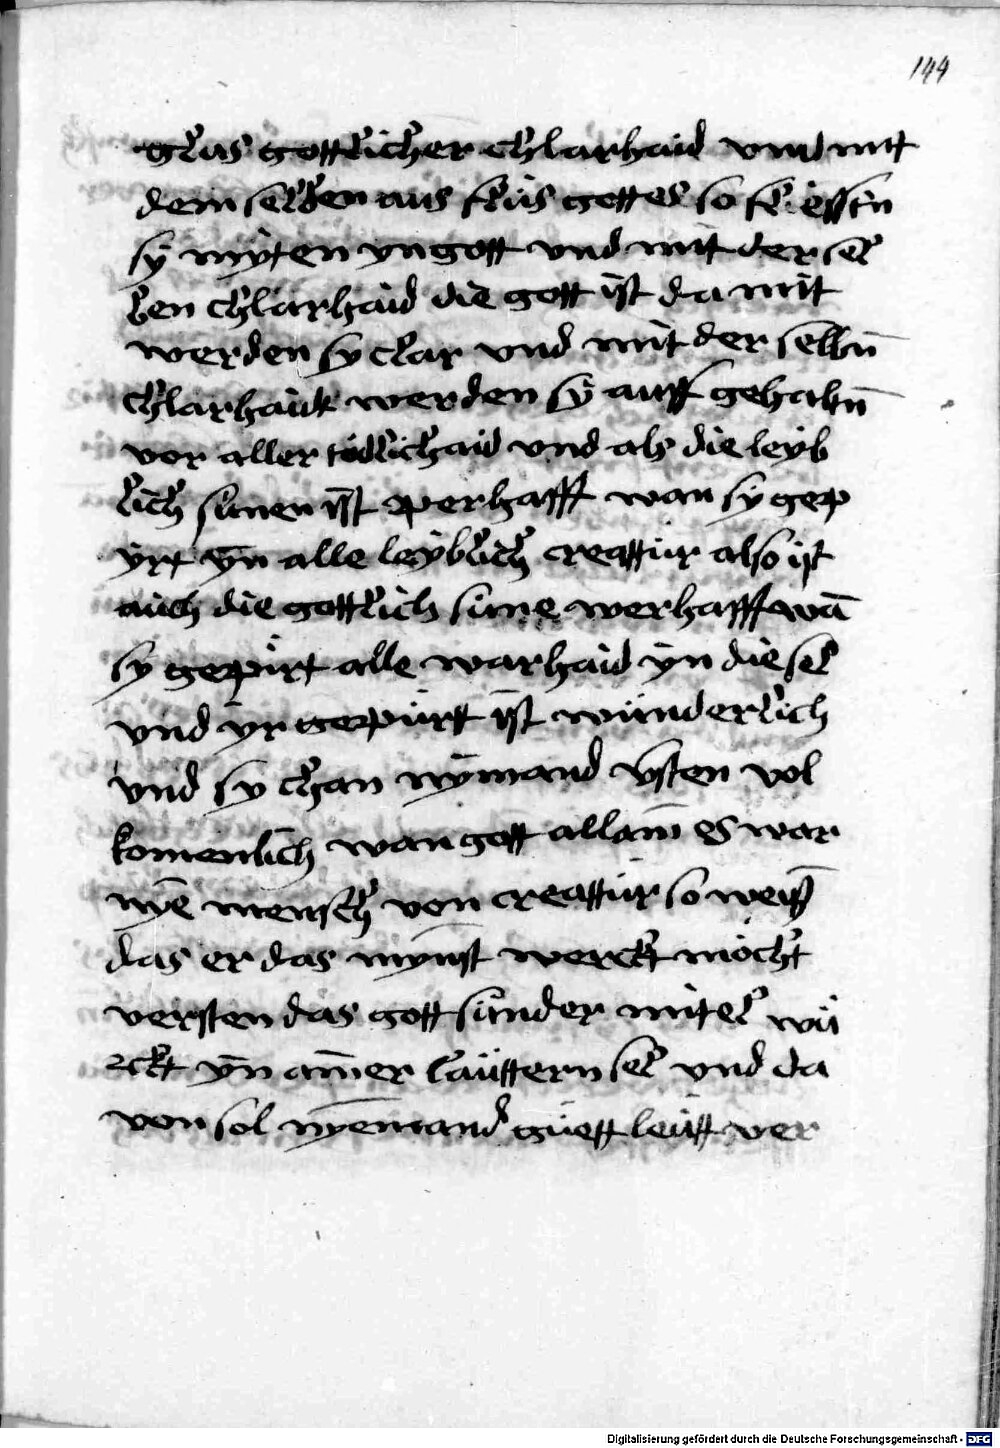 144
glas gottlicher chlarhaid vnd mitt
dem selben aus flus gottes so fliessen
sy mytten yn gott vnd mit der sel
ben chlarhaid die gott ist da mit
werden sy clar vnd mit der selbn̄
chlarhaid werden sy auff gehabn̄
vor aller tödlichaid vnd als die leyb
lich sinnen ist perhafft wan sy gep
yrt yn alle leyblich creattur also ist
auch die gottlich sinne werhafft wā
sy gepürt alle warhaid yn die sel
vnd yr gepurtt ist wunderlich
vnd sy chan nymand vsten vol
komenlich wan gott allain es war
nye mensch von creattur so weis
das er das mynst werckt möcht
versten das gott sunder mitel wü
rckt yn ainer lauttern sel vnd da
von sol nyemand guett leutt ver
Digitalisierung gefördert durch die Deutsche Forschungsgemeinschaft - DFG